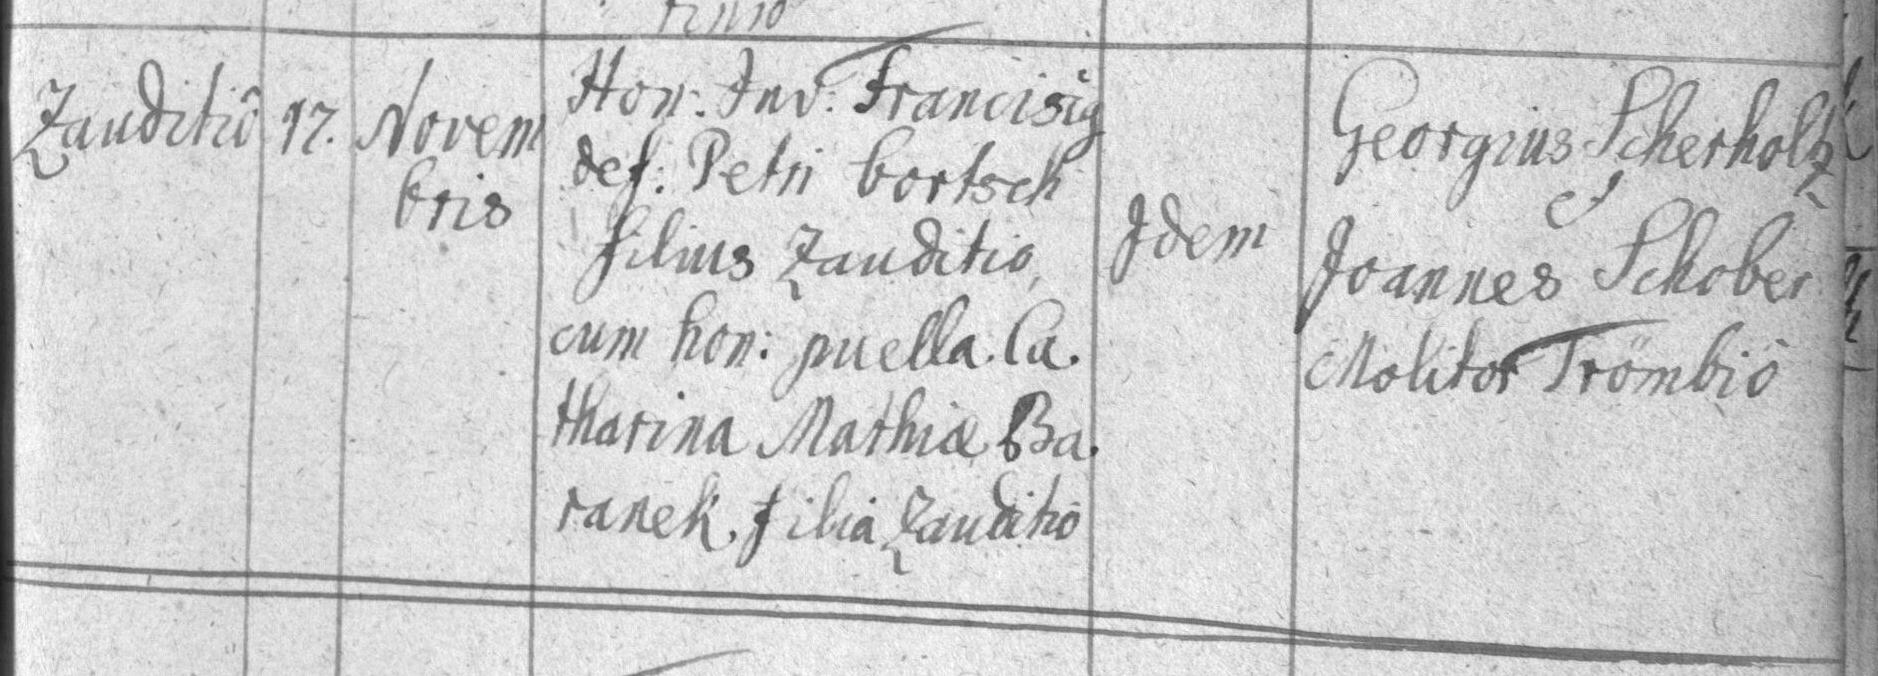 Zauditiô 17. Novem
bris
Hon: Juv: Francisig
def: Petri bortsch
filius Zauditio,
cum hon: puella. Ca.
tharina Mathiæ Ba.
ranek. filia Zauditiô
Jdem
Georgius Scherholtz
et
Joannes Schober
Molitor Trömbiô